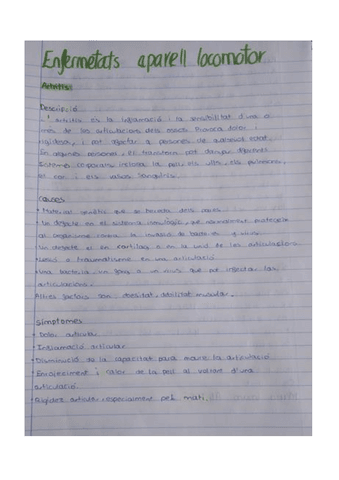 Enfermetats aparell locomotor
Artritis:
Descripció
L'artritis és la inflamació i la sensibilitat d'una o
més de les articulacions dels ossos. Provoca dolor i
rigidesa, i pot afectar a persones de qualsevol edat.
En algunes persones, el trastorn pot danyar diferents
sistemes corporals inclosa la pell, els ulls, els pulmons,
el cor i els vasos sanguinis.
causes
Material genètic que se hereta dels pares
en el sistema immulògic, que normalment protegeix
al organisme contra la invasió de bacteris y virus.
Un desgast el en cartílag o en la unió de les articulacions
Lesió o traumatisme en una articulació
Una bacteria un fong o un virus que pot infectar las
articulacions.
Altres factors són obesitat, debilitat muscular.
Símptomes
Dolor articular.
Inflamació articular
Disminució de la capacitat para moure la articulació
Enrojeciment i calor de la pell al voltant d'una
articulació.
Rigidez articular especialment pel matí.